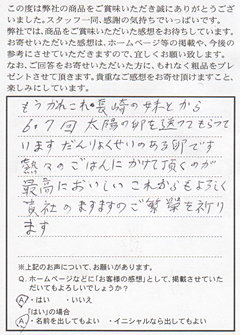 この度は弊社の商品をご賞味いただき誠にありがとうござ
いました。スタッフ一同、感謝の気持ちでいっぱいです。
弊社では、商品をご賞味いただいた感想をお待ちしています。
お寄せいただいた感想は、ホームページ等の掲載や、今後の
参考にさせていただきますので、宜しくお願い致します。
なお、ご回答をお寄せいただいた方に、もれなく粗品をプレ
ゼントさせて頂きます。貴重なご感想をお寄せ頂けますこと、
楽しみにしています。
もうかれこれ長崎の妹とから
6〜7回太陽の卵を送ってもらって
いますだんりょくせいのある卵です
熱々のごはんにかけて頂くのが
最高においしいこれからもよろしく
貴社のますますのご繁栄を祈り
ます
※上記のお声について、お願いがあります。
Q. ホームページなどに「お客様の感想」として、掲載させていた
だいてもよろしいでしょうか？
A・はい ・いいえ
「はい」の場合
A・名前を出してもよい ・イニシャルなら出してもよい